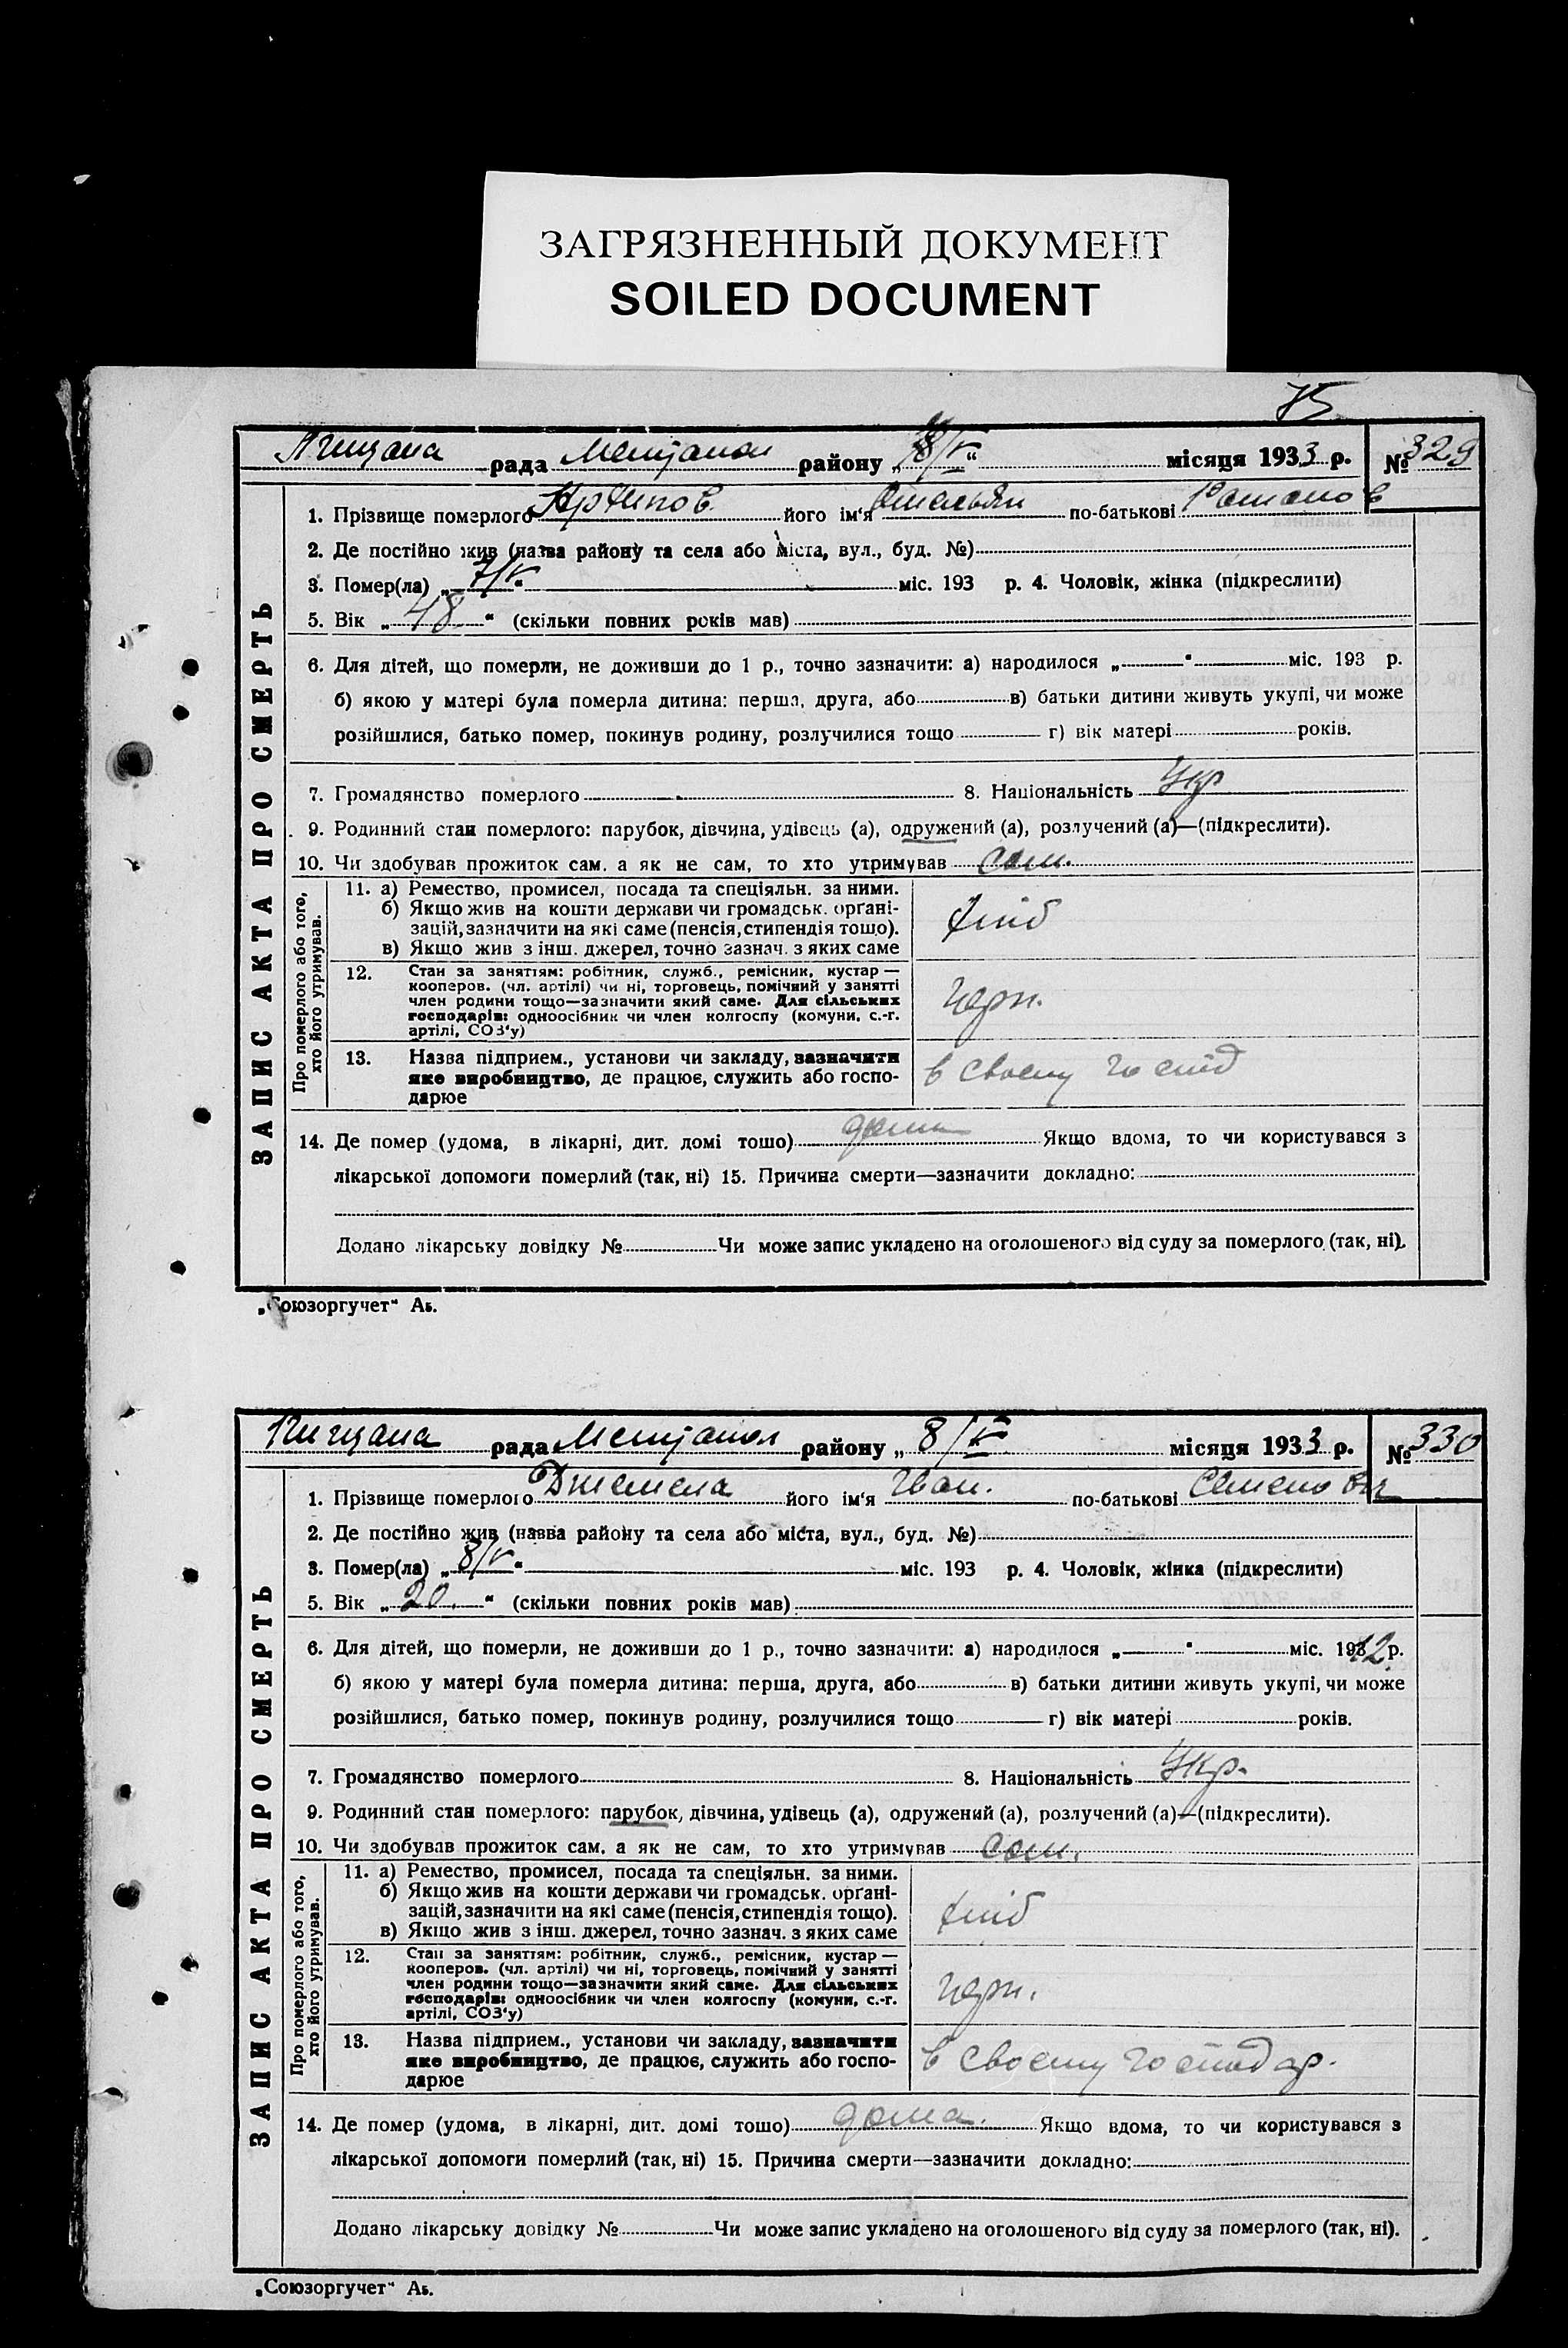 ЗАГРЯЗНЕННЫЙ ДОКУМЕНТ
SOILED DOCUMENT
75
рада района „8/V“ місяця 1933 р. № 329
ЗАПИС АКТА ПРО СМЕРТЬ
1. Прізвище померлого Архипов його ім'я Омельян по-батькові Романов
2. Де постійно жив (назва району та села або міста, вул., буд. №)
3. Помер(ла) „7/V“ міс. 193 р. 4. Чоловік, жінка (підкреслити)
5. Вік „48“ (скільки повних років мав)
6. Для дітей, що померли, не доживши до 1 р., точно зазначити: а) народилося „ “ міс. 193 р.
б) якою у матері була померла дитина: перша, друга, або в) батьки дитини живуть укупі, чи може
розійшлися, батько помер, покинув родину, розлучилися тощо г) вік матері років.
7. Громадянство померлого 8. Національність Укр
9. Родинний стан померлого: парубок, дівчина, удівець (а), одружений (а), розлучений (а)—(підкреслити).
10. Чи здобував прожиток сам, а як не сам, то хто утримував сам.
Про померлого або того, хто його утримував.
11. а) Ремество, промисел, посада та спеціяльн. за ними.
б) Якщо жив на кошти держави чи громадськ. орґані-
зацій, зазначити на які саме (пенсія, стипендія тощо).
в) Якщо жив з інш. джерел, точно зазнач. з яких саме
хліб
12. Стан за заняттям: робітник, служб., ремісник, кустар —
кооперов. (чл. артілі) чи ні, торговець, помічний у занятті
член родини тощо—зазначити який саме. Для сільських
господарів: одноосібник чи член колгоспу (комуни, с.-г.
артілі, СОЗ'у)
13. Назва підприєм., установи чи закладу, зазначити
яке виробництво, де працює, служить або госпо-
дарює
в своєму госпід
14. Де помер (удома, в лікарні, дит. домі тощо) дома Якщо вдома, то чи користувався з
лікарської допомоги померлий (так, ні) 15. Причина смерти—зазначити докладно:
Додано лікарську довідку № Чи може запис укладено на оголошеного від суду за померлого (так, ні).
„Союзоргучет“ Аь.
рада району „8/V“ місяця 1933 р. № 330
ЗАПИС АКТА ПРО СМЕРТЬ
1. Прізвище померлого його ім'я Іван. по-батькові Семенович
2. Де постійно жив (назва району та села або міста, вул., буд. №)
3. Помер(ла) „8/V“ міс. 193 р. 4. Чоловік, жінка (підкреслити)
5. Вік „20.“ (скільки повних років мав)
6. Для дітей, що померли, не доживши до 1 р., точно зазначити: а) народилося „ “ міс. 1912 р.
б) якою у матері була померла дитина: перша, друга, або в) батьки дитини живуть укупі, чи може
розійшлися, батько помер, покинув родину, розлучилися тощо г) вік матері років.
7. Громадянство померлого 8. Національність Укр.
9. Родинний стан померлого: парубок, дівчина, удівець (а), одружений (а), розлучений (а)—(підкреслити).
10. Чи здобував прожиток сам, а як не сам, то хто утримував сам.
Про померлого або того, хто його утримував.
11. а) Ремество, промисел, посада та спеціяльн. за ними.
б) Якщо жив на кошти держави чи громадськ. орґані-
зацій, зазначити на які саме (пенсія, стипендія тощо).
в) Якщо жив з інш. джерел, точно зазнач. з яких саме
хліб
12. Стан за заняттям: робітник, служб., ремісник, кустар —
кооперов. (чл. артілі) чи ні, торговець, помічний у занятті
член родини тощо—зазначити який саме. Для сільських
господарів: одноосібник чи член колгоспу (комуни, с.-г.
артілі, СОЗ'у)
13. Назва підприєм., установи чи закладу, зазначити
яке виробництво, де працює, служить або госпо-
дарює
в своєму господар.
14. Де помер (удома, в лікарні, дит. домі тощо) дома. Якщо вдома, то чи користувався з
лікарської допомоги померлий (так, ні) 15. Причина смерти—зазначити докладно:
Додано лікарську довідку № Чи може запис укладено на оголошеного від суду за померлого (так, ні).
„Союзоргучет“ Аь.